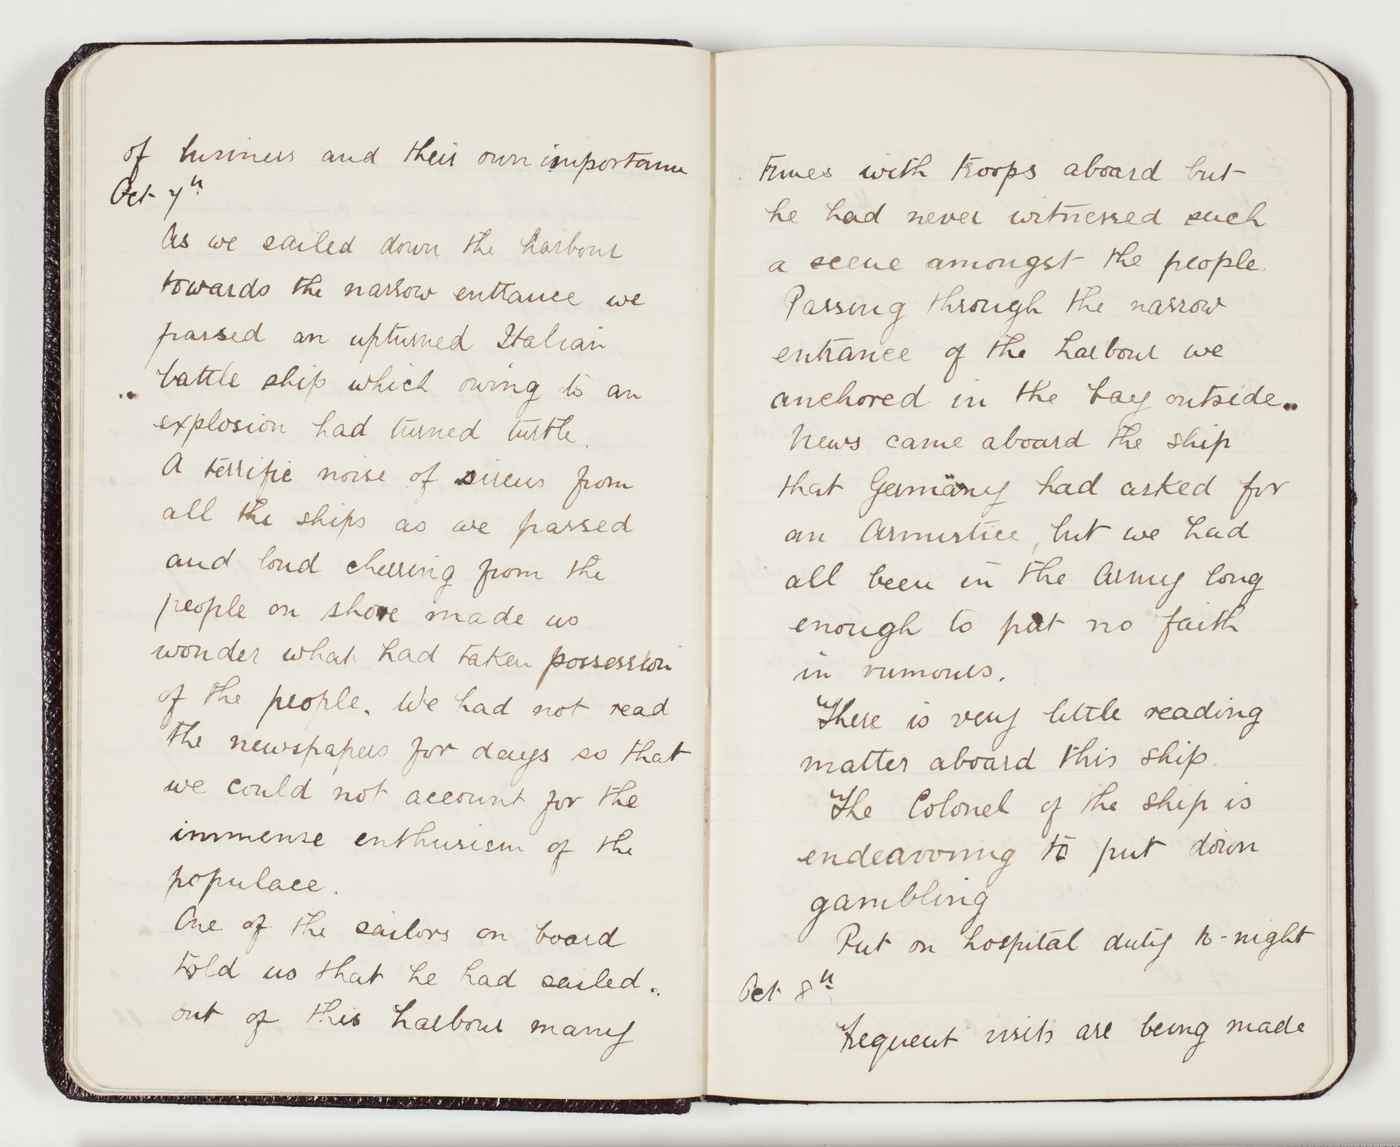 of business and their own importance
Oct 7th
As we sailed down the harbour
towards the narrow entrance we
passed an upturned Italian
battle ship which owing to an
explosion had turned turtle.
A terrific noise of sirens from
all the ships as we passed
and loud cheering from the
people on shore made us
wonder what had taken possession
of the people. We had not read
the newspapers for days so that
we could not account for the
immense enthusism of the
populace.
One of the sailors on board
told us that he had sailed
out of this harbour many
times with troops aboard but
he had never witnessed such
a scene amongst the people.
Passing through the narrow
entrance of the harbour we
anchored in the bay outside.
News came aboard the ship
that Germany had asked for
an Armistice, but we had
all been in the Army long
enough to put no faith
in rumours.
There is very little reading
matter aboard this ship.
The Colonel of the ship is
endeavouring to put down
gambling
Put on hospital duty to-night
Oct 8th
Frequent visits are being made